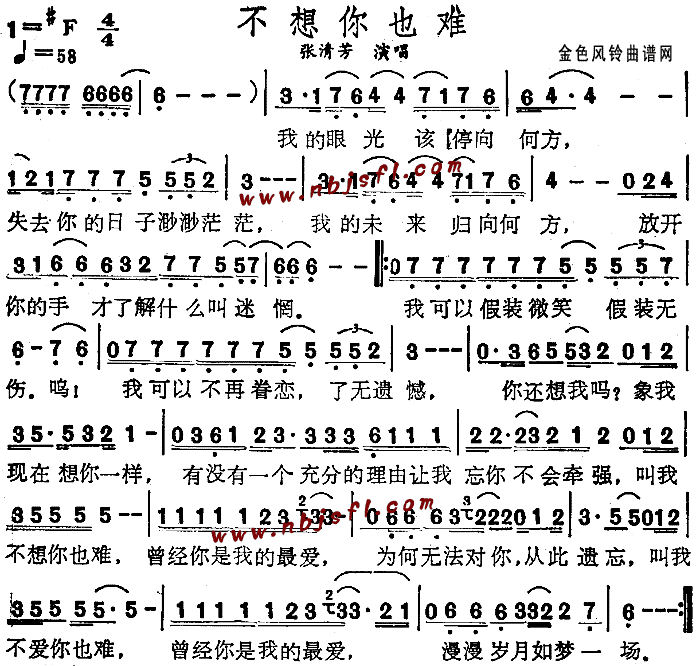 不想你也难
1=#F 4/4
♩=58
张清芳 演唱
金色风铃曲谱网
(7777 6666 | 6 - - ) | 3·1 7 6 4 4 7 1 7 6 | 6 4·4 - - |
我的眼光 该停向 何方，
1 2 1 7 7 7 5 5 5 2 | 3 - - - | 3·1 7 6 4 4 7 1 7 6 | 4 - - 0 2 4 |
失去你的日子渺渺茫茫， 我的未来归向何方， 放开
www.nbjsfl.com
3 1 6 6 6 3 2 7 7 5 5 7 | 6 6 6 - - :0 7 7 7 7 7 7 5 5 5 5 7 |
你的手 才了解什么叫迷惘。 我可以假装微笑 假装无
6 - 7 6 | 0 7 7 7 7 7 7 5 5 5 5 2 | 3 - - - | 0·3 6 5 5 3 2 0 1 2 |
伤。呜！ 我可以不再眷恋，了无遗憾， 你还想我吗？象我
3 5·5 3 2 1 - | 0 3 6 1 2 3·3 3 3 6 1 1 1 | 2 2·2 3 2 1 2 0 1 2 |
现在想你一样， 有没有一个充分的理由让我 忘你不会牵强，叫我
3 5 5 5 5 - - | 1 1 1 1 1 2 3 2 3 3 - - | 0 6 6 6 3 3 2 2 2 0 1 2 | 3·5 5 0 1 2 |
不想你也难， 曾经你是我的最爱， 为何无法对你，从此遗忘，叫我
www.nbjsfl.com
3 5 5 5 5·5 - | 1 1 1 1 1 2 3 2 3 3·2 1 | 0 6 6 6 5 6 3 2 2 7 | 6 - - :|
不爱你也难， 曾经你是我的最爱， 漫漫岁月如梦一场。